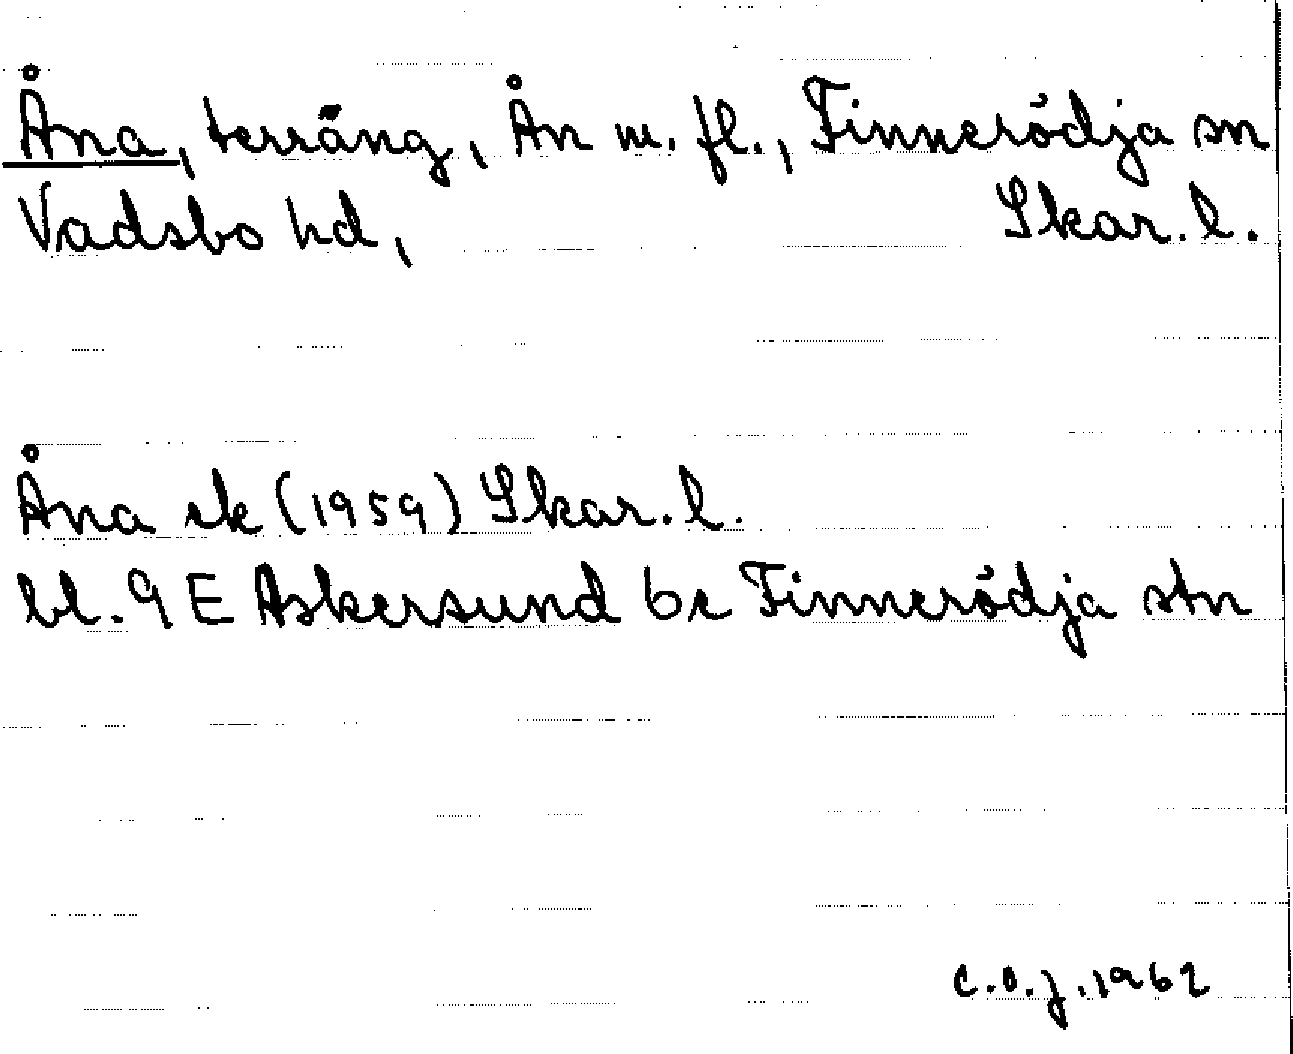 Åna, terräng, Ån m. fl., Finnerödja sn
Vadsbo hd, Skar. l.
Åna ek (1959) Skar. l.
bl. 9 E Askersund 6c Finnerödja stn
C.O.J. 1962